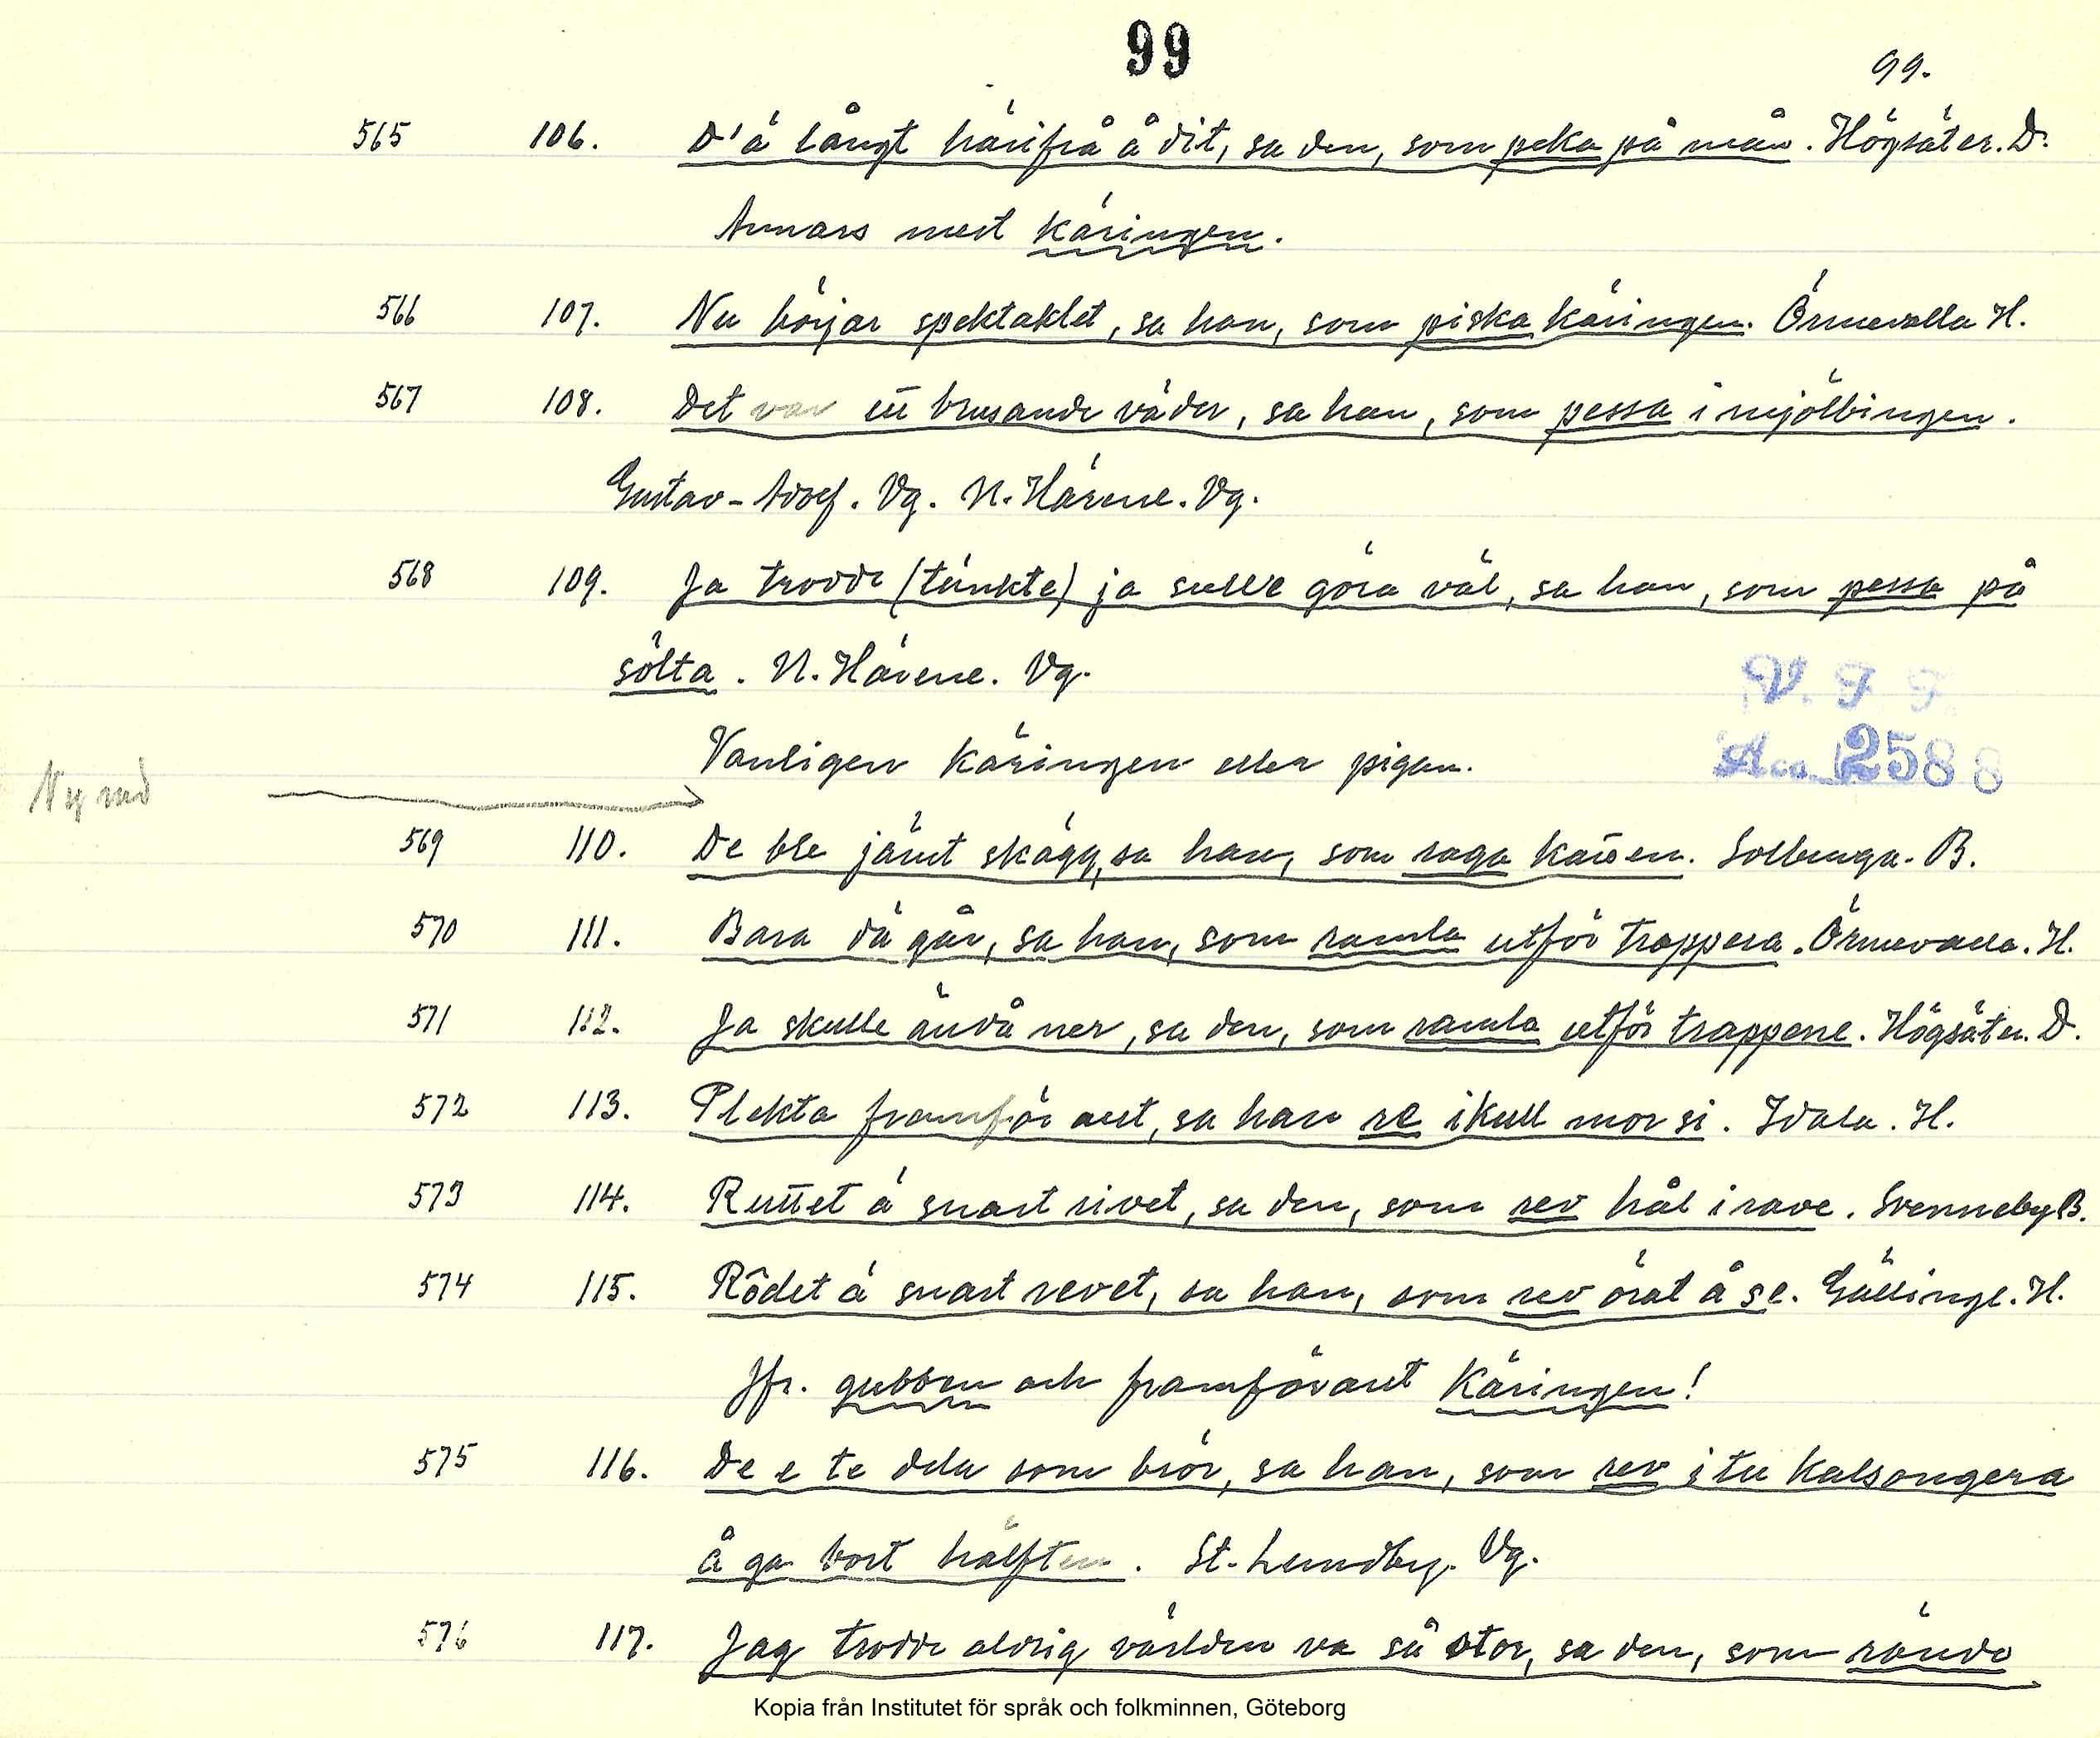 99
99.
565 106. D'ä långt härifrå å dit, sa den, som peka på mån. Högsäter. D.
Annars mest käringen.
566 107. Nu börjar spektaklet, sa han, som piska käringen. Örnevalla H.
567 108. Det var ett brusande väder, sa han, som pessa i mjölbingen.
Gustav-Adolf. Vg. N. Härene. Vg.
568 109. Ja trodde (tänkte) ja sulle göra väl, sa han, som pessa på
sölta. N. Härene. Vg.
V. F. F.
Vanligen käringen eller pigan.
Acc. 2588
Ny rad
569 110. De ble jämt skägg, sa han, som raga Solberga. B.
570 111. Bara dä går, sa han, som ramla utför trappera. Örnevalla. H.
571 112. Ja skulle ändå ner, sa den, som ramla utför trappene. Högsäter. D.
572 113. Plekta framför aut, sa han re ikull mor si. Idala. H.
573 114. Ruttet ä snart rivet, sa den, som rev hål i rave. Svenneby B.
574 115. Rôdet ä snart revet, sa han, som rev örat å se. Gällinge. H.
Jfr. gubben och framförallt Käringen!
575 116. De e te dela som brör, sa han, som rev itu kalsongera
å ga bort hälften. St. Lundby. Vg.
576 117. Jag trodde aldrig världen va så stor, sa den, som rände
Kopia från Institutet för språk och folkminnen, Göteborg